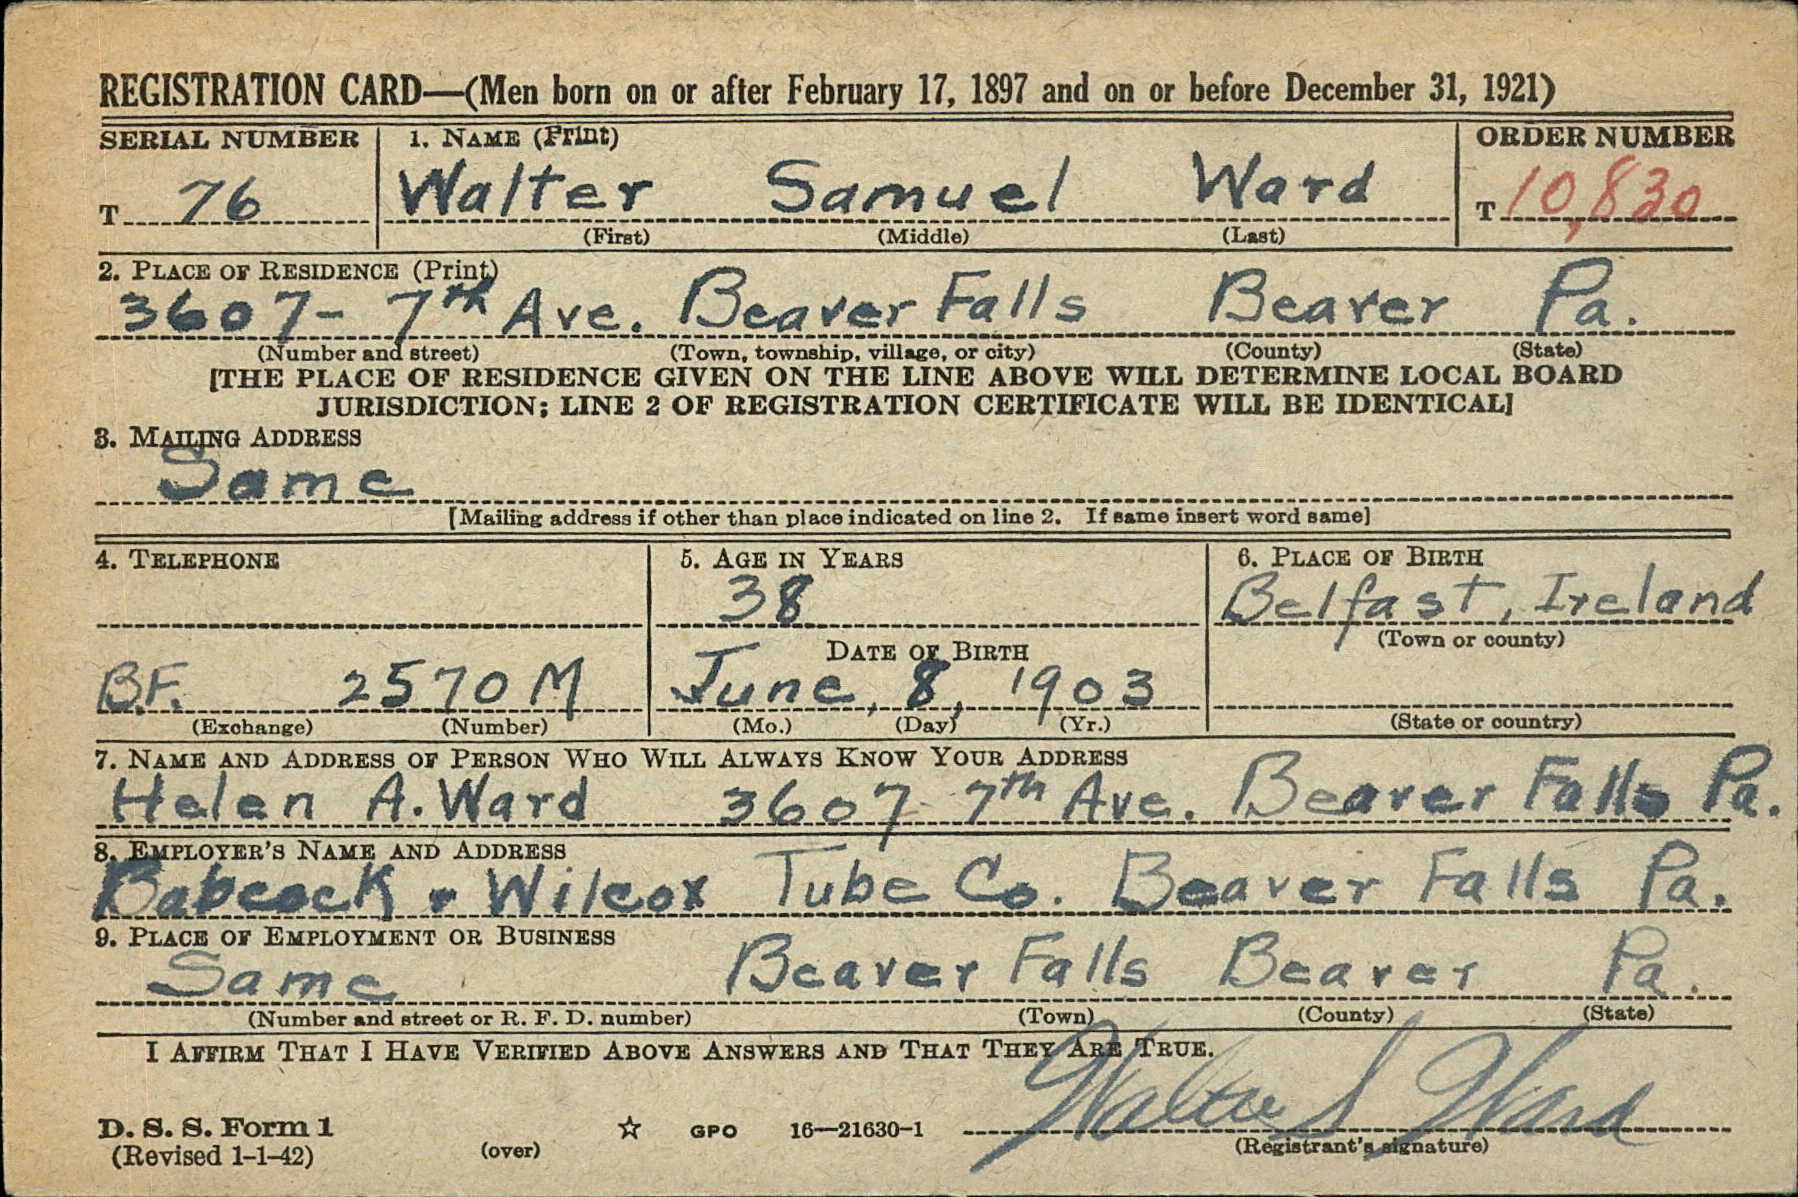 REGISTRATION CARD—(Men born on or after February 17, 1897 and on or before December 31, 1921)
SERIAL NUMBER 1. NAME (Print) ORDER NUMBER
T 76 Walter Samuel Ward T 10,830
(First) (Middle) (Last)
2. PLACE OF RESIDENCE (Print)
3607- 7th Ave. Beaver Falls Beaver Pa.
(Number and street) (Town, township, village, or city) (County) (State)
[THE PLACE OF RESIDENCE GIVEN ON THE LINE ABOVE WILL DETERMINE LOCAL BOARD
JURISDICTION; LINE 2 OF REGISTRATION CERTIFICATE WILL BE IDENTICAL]
3. MAILING ADDRESS
Same
[Mailing address if other than place indicated on line 2. If same insert word same]
4. TELEPHONE 5. AGE IN YEARS 6. PLACE OF BIRTH
38 Belfast, Ireland
(Town or county)
DATE OF BIRTH
B.F. 2570 M June, 8, 1903
(Exchange) (Number) (Mo.) (Day) (Yr.) (State or country)
7. NAME AND ADDRESS OF PERSON WHO WILL ALWAYS KNOW YOUR ADDRESS
Helen A. Ward 3607 7th Ave. Beaver Falls Pa.
8. EMPLOYER'S NAME AND ADDRESS
Babcock & Wilcox Tube Co. Beaver Falls Pa.
9. PLACE OF EMPLOYMENT OR BUSINESS
Same Beaver Falls Beaver Pa.
(Number and street or R. F. D. number) (Town) (County) (State)
I AFFIRM THAT I HAVE VERIFIED ABOVE ANSWERS AND THAT THEY ARE TRUE.
Walter S Ward
D. S. S. Form 1 GPO 16—21630-1
(Revised 1-1-42) (over) (Registrant's signature)